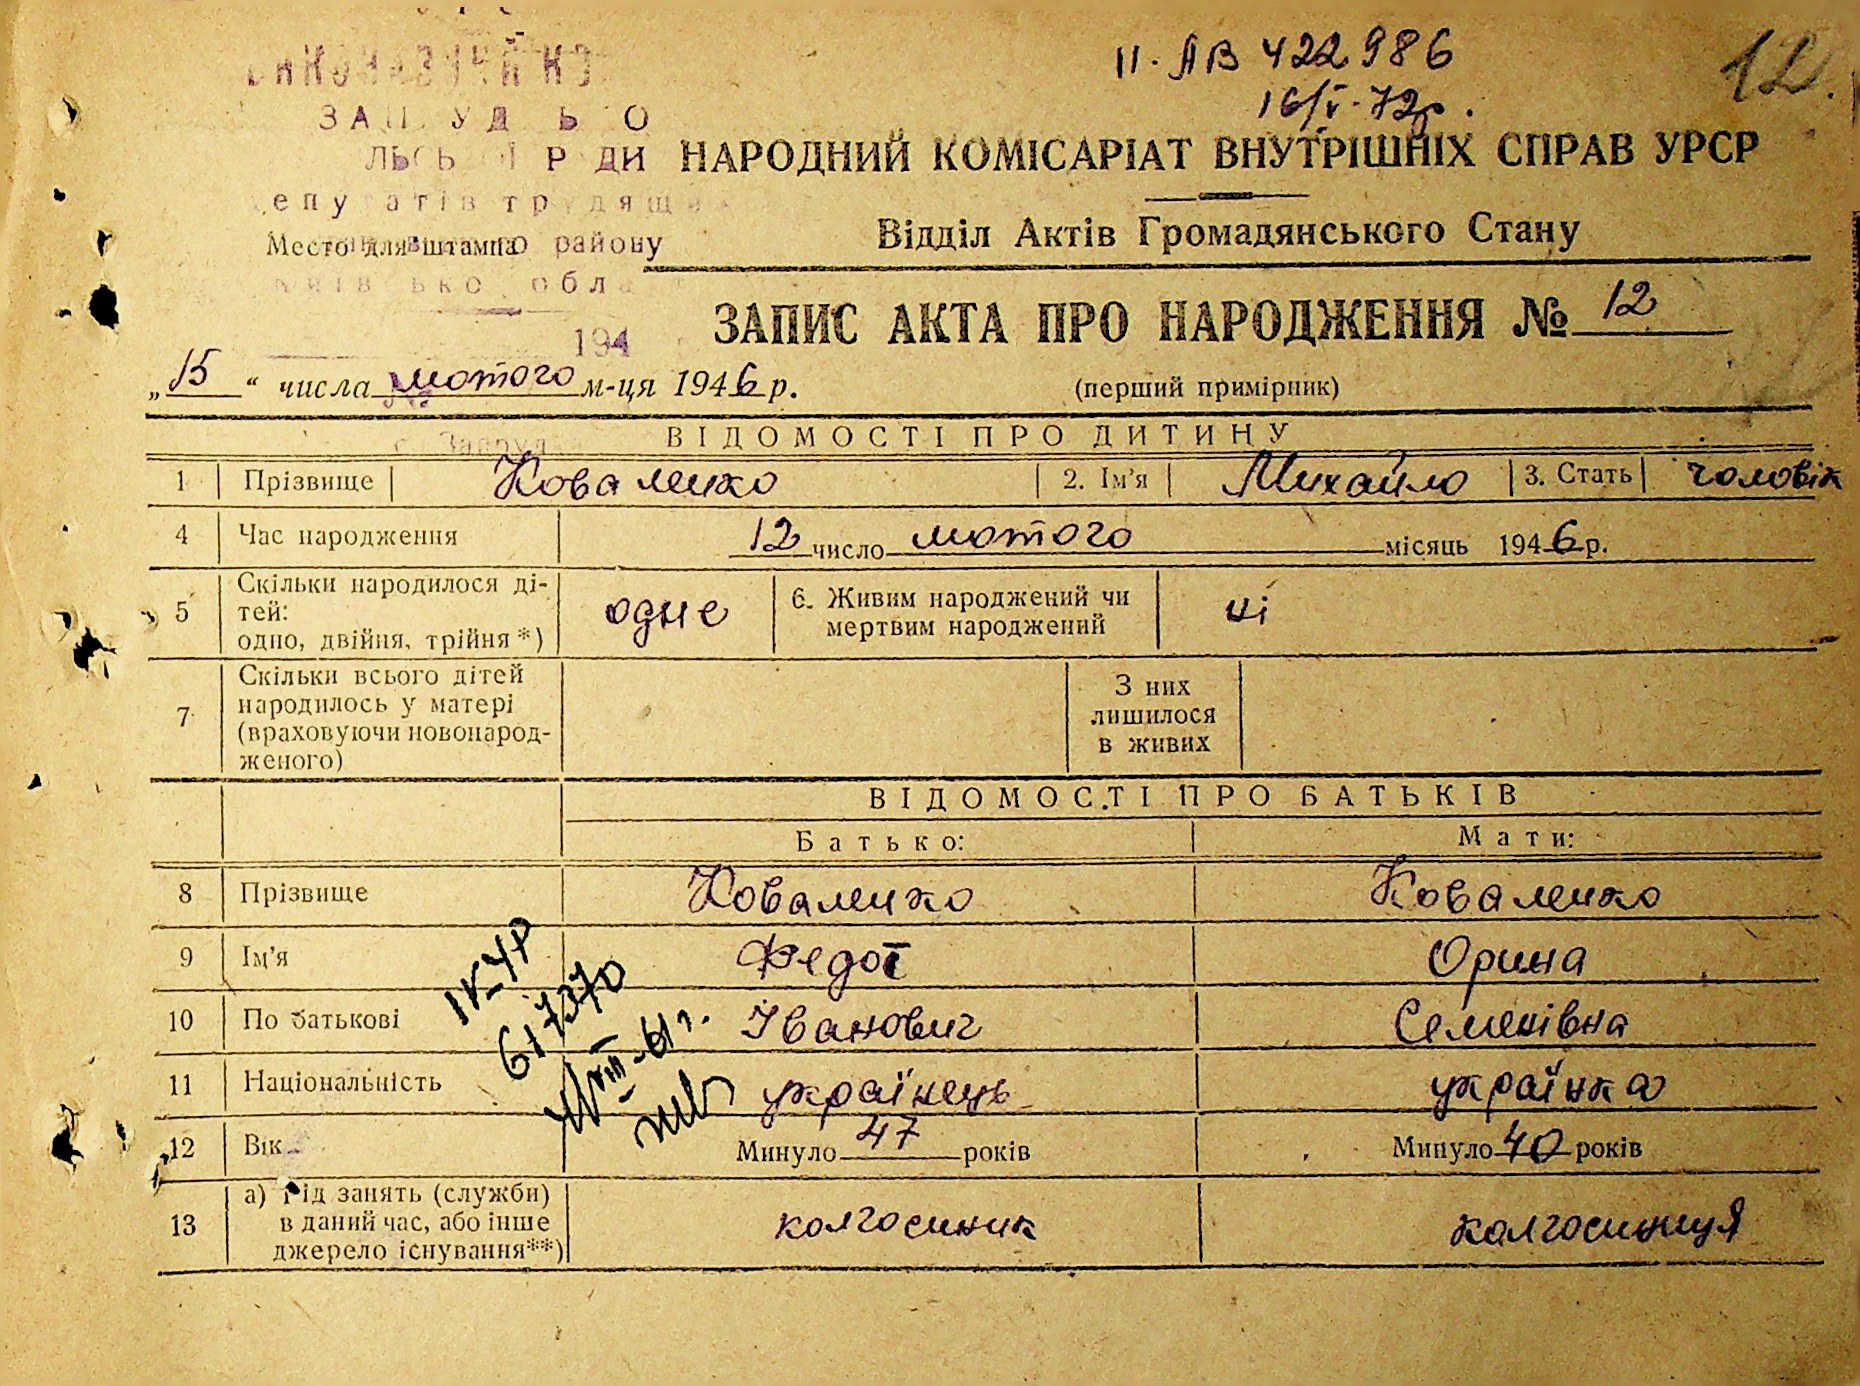 II-ЯВ 422986
12.
16/V-72р.
НАРОДНИЙ КОМІСАРІАТ ВНУТРІШНІХ СПРАВ УРСР
Место для штампа
району
Відділ Актів Громадянського Стану
ЗАПИС АКТА ПРО НАРОДЖЕННЯ № 12
194
„15“ числа лютого м-ця 1946 р.
(перший примірник)
ВІДОМОСТІ ПРО ДИТИНУ
1 Прізвище Коваленко 2. Ім'я Михайло 3. Стать чоловік
4 Час народження 12 число лютого місяць 1946 р.
5 Скільки народилося ді-
тей:
одно, двійня, трійня *)
одне
6. Живим народжений чи
мертвим народжений
ні
7 Скільки всього дітей
народилось у матері
(враховуючи новонарод-
женого)
З них
лишилося
в живих
ВІДОМОСТІ ПРО БАТЬКІВ
Батько: Мати:
8 Прізвище Коваленко Коваленко
9 Ім'я Федот Орина
10 По батькові Іванович Семенівна
11 Національність українець українка
12 Вік Минуло 47 років Минуло 40 років
13 а) Рід занять (служби)
в даний час, або інше
джерело існування**)
колгоспник колгоспниця
IV-УР
617370